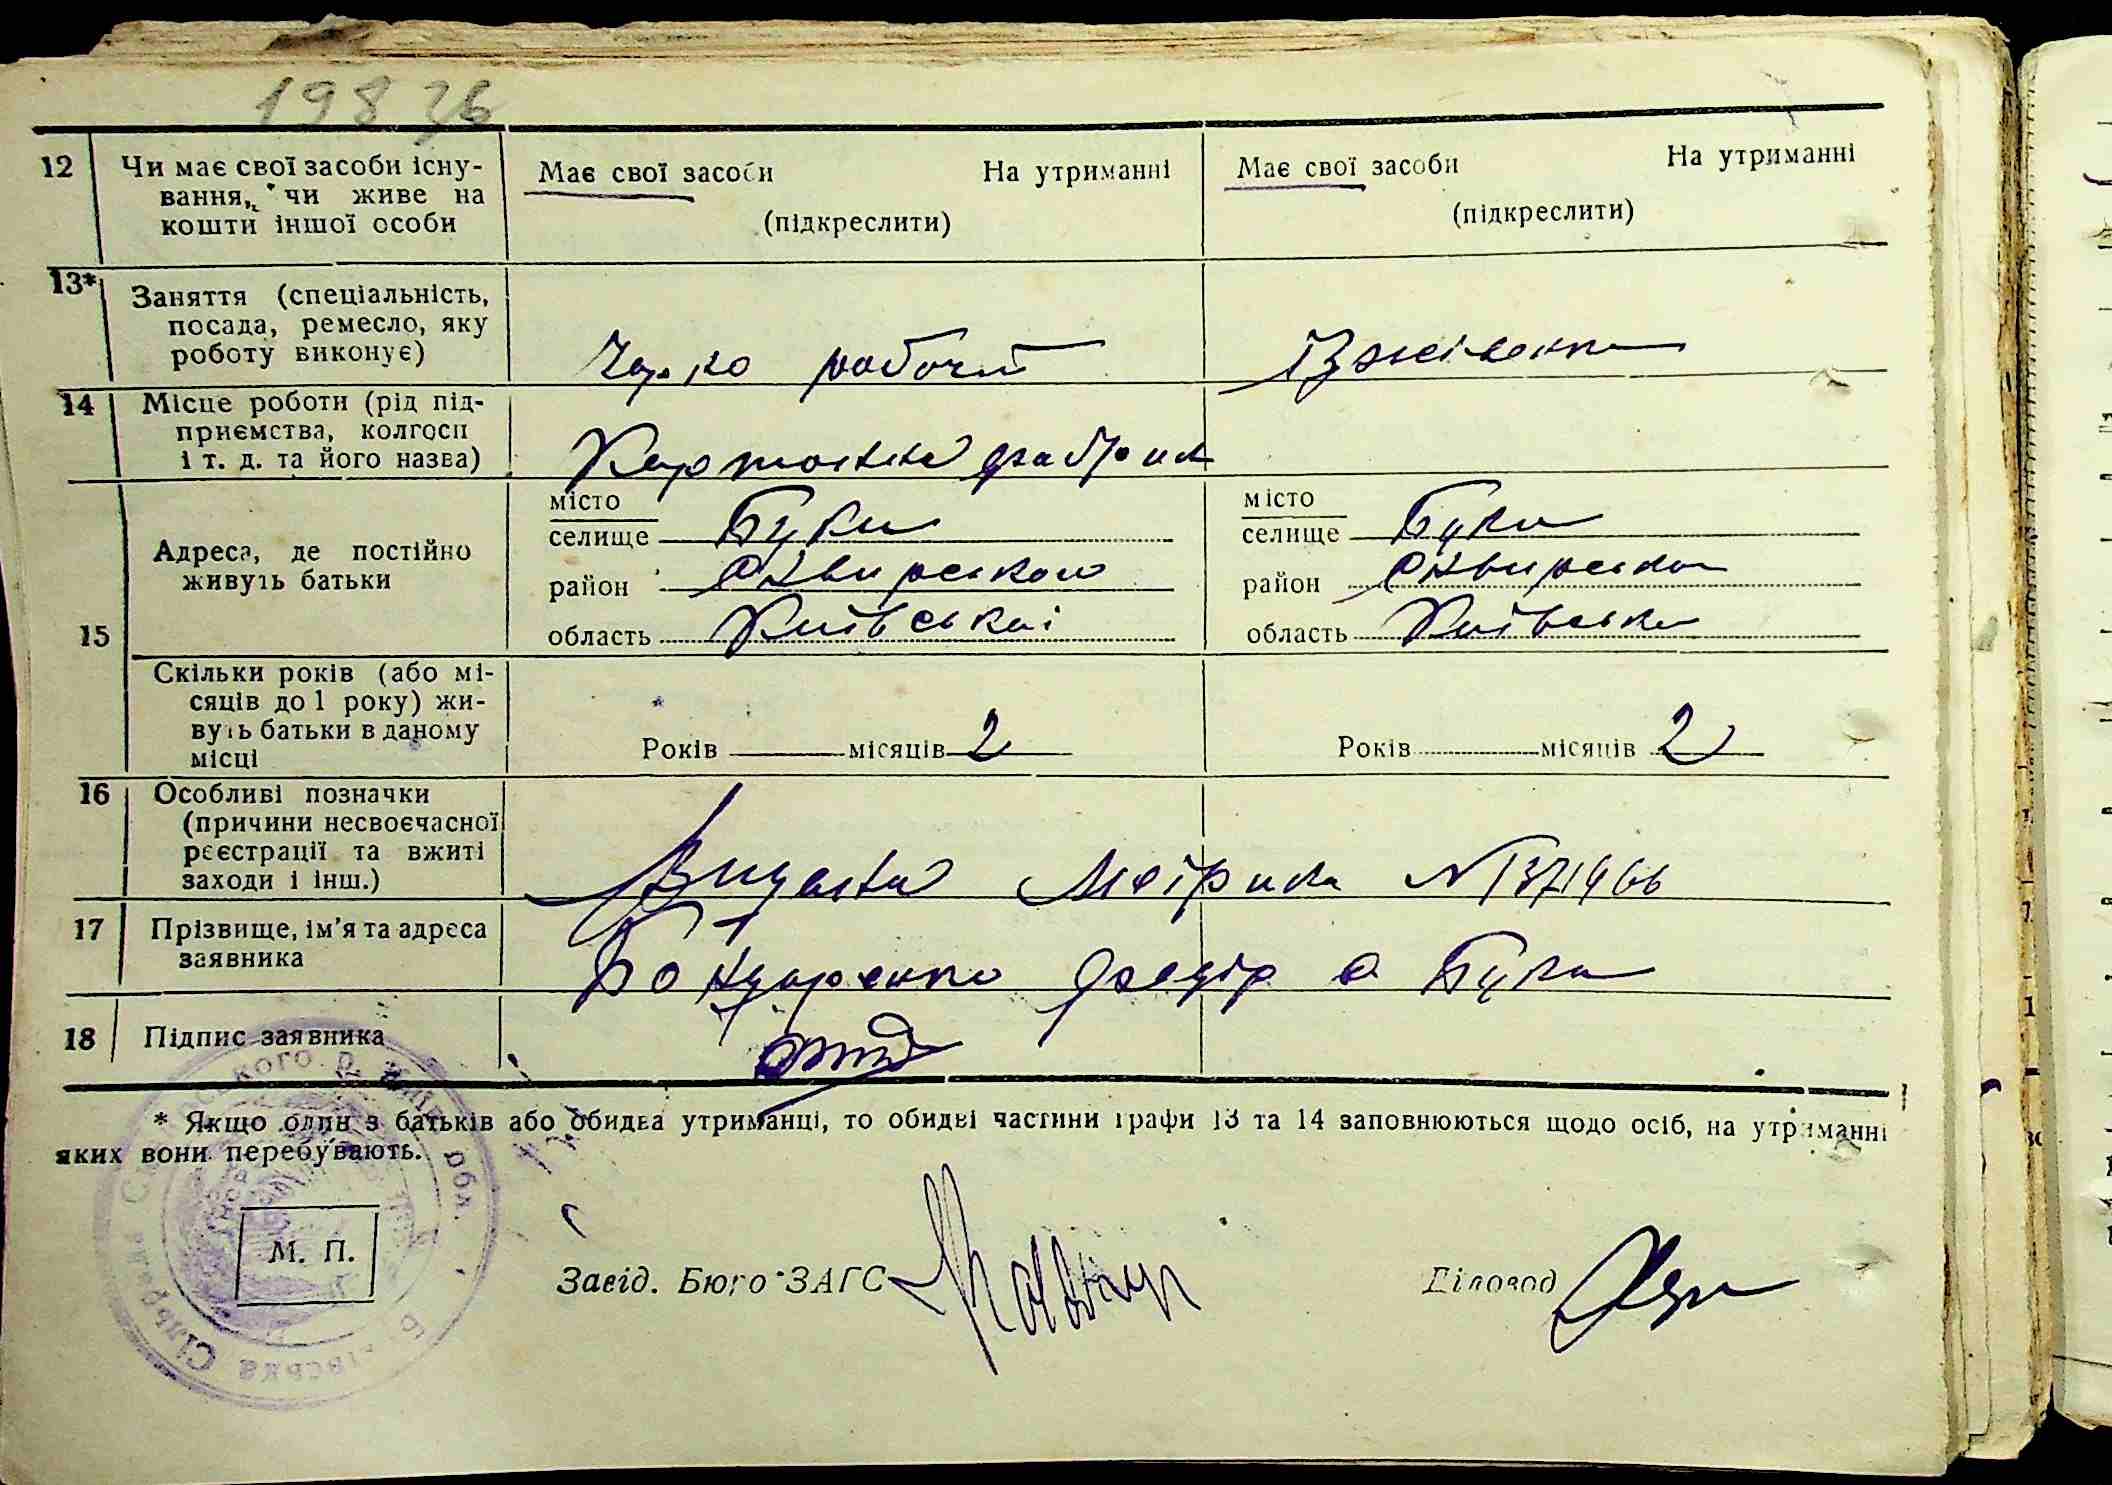 198 зв
12 Чи має свої засоби існу-
вання, чи живе на
кошти іншої особи
Має свої засоби На утриманні
(підкреслити)
Має свої засоби На утриманні
(підкреслити)
13* Заняття (спеціальність,
посада, ремесло, яку
роботу виконує)
рабочий
Іждівенка
14 Місце роботи (рід під-
приємства, колгосп
і т. д. та його назва)
фабрик
15
Адреса, де постійно
живуть батьки
місто
селище Буки
район Сквирського
область Київської
місто
селище Буки
район Сквирського
область Київська
Скільки років (або мі-
сяців до 1 року) жи-
вуть батьки в даному
місці
Років місяців 2
Років місяців 2
16 Особливі позначки
(причини несвоєчасної
реєстрації та вжиті
заходи і інш.)
Видана Метрика № 1371966
17 Прізвище, ім'я та адреса
заявника
Бондаренко Федір с Буки
18 Підпис заявника
* Якщо один з батьків або обидва утриманці, то обидві частини графи 13 та 14 заповнюються щодо осіб, на утриманні
яких вони перебувають.
М. П.
Завід. Бюро ЗАГС
Діловод